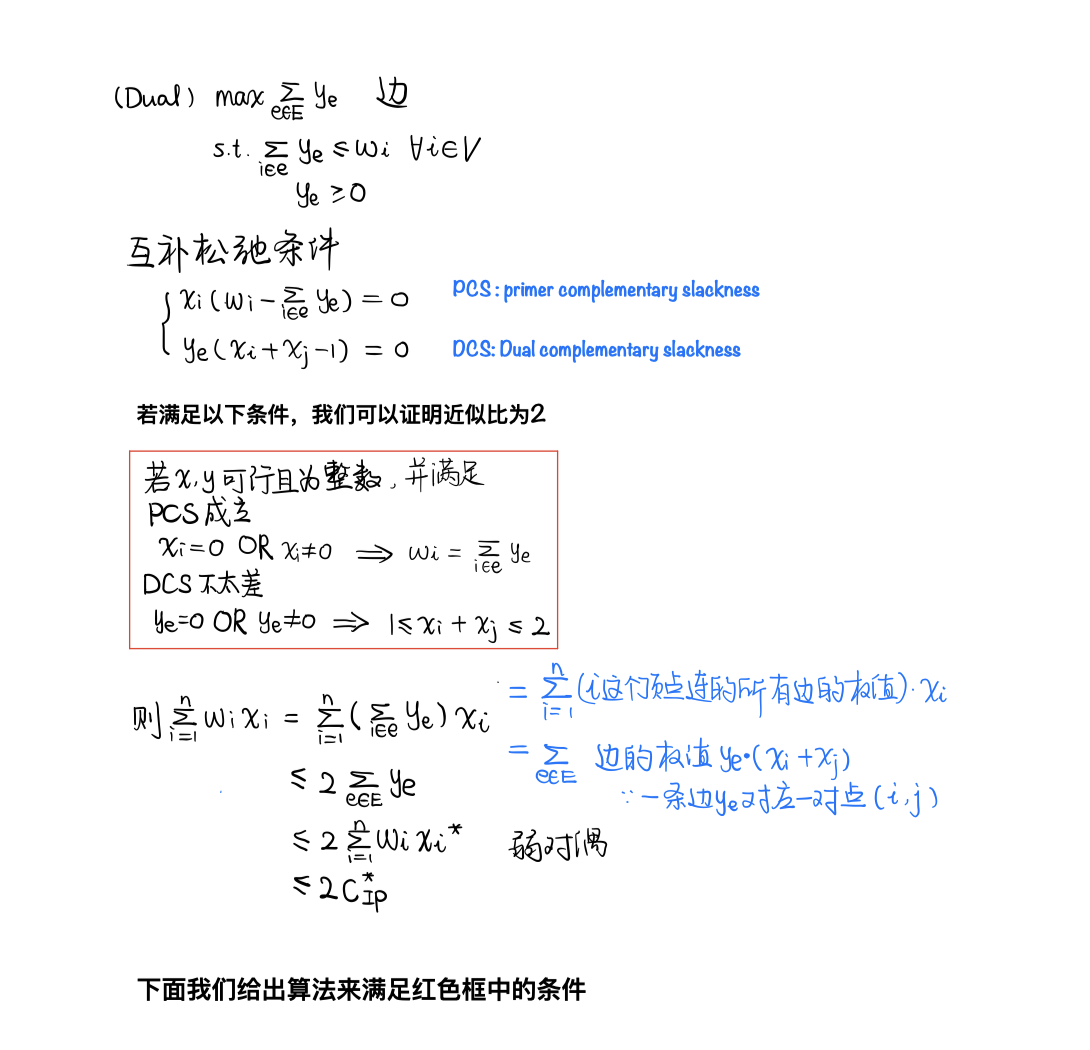 (Dual) max ∑_{e∈E} y_e 边
s.t. ∑_{i∈e} y_e ≤ w_i ∀i∈V
y_e ≥ 0
互补松弛条件
{ x_i(w_i - ∑_{i∈e} y_e) = 0 PCS : primer complementary slackness
y_e(x_i + x_j - 1) = 0 DCS: Dual complementary slackness
若满足以下条件，我们可以证明近似比为2
若x,y可行且为整数，并满足
PCS成立
x_i=0 OR x_i≠0 ⟹ w_i = ∑_{i∈e} y_e
DCS不太差
y_e=0 OR y_e≠0 ⟹ 1≤x_i + x_j ≤ 2
则 ∑_{i=1}^{n} w_i x_i = ∑_{i=1}^{n} (∑_{i∈e} y_e) x_i
= ∑_{i=1}^{n} (i这个顶点连的所有边的权值)·x_i
= ∑_{e∈E} 边的权值 y_e·(x_i + x_j)
∵一条边y_e对应一对点(i,j)
≤ 2 ∑_{e∈E} y_e
≤ 2 ∑_{i=1}^{n} w_i x_i^* 弱对偶
≤ 2 C_{IP}^*
下面我们给出算法来满足红色框中的条件